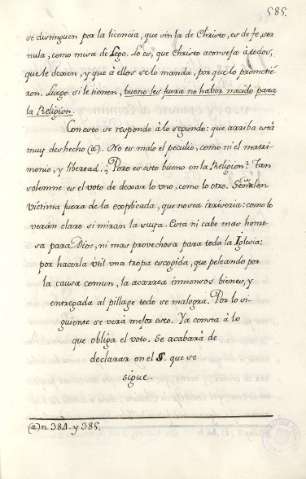 585.
se distinguen por la licencia, que sin la de Christo, es de fe, ser
nula, como musa de Lego. Lo es, que Christo aconseja à todos,
que le dexen, y que à ellos se lo manda, porque lo prometiè
ron. Luego si le tienen, bueno les fuera no haber nacido para
la Religion.
Con esto se responde à lo segundo: que arriba està
muy deshecho (a). No es malo el peculio, como ni el matri
monio, y libertad... Pero es esto bueno en la Religion? Tan
solemne es el voto de dexar lo uno, como lo otro.
victima fuera de la explicada, que no sea irrisoria: como lo
veràn claro si miran la suya. Esta ni cabe mas hones
ta para Dios, ni mas provechosa para toda la Iglesia:
por hacerla util una tropa escogida, que peleando por
la causa comun, la acarrea inmensos bienes, y
entregada al pillage todo se malogra. Por lo si-
guiente se verà mejor esto. Ya consta à lo
que obliga el voto. Se acabarà de
declarar en el §. que se
sigue.
(a) n. 384. y 385.